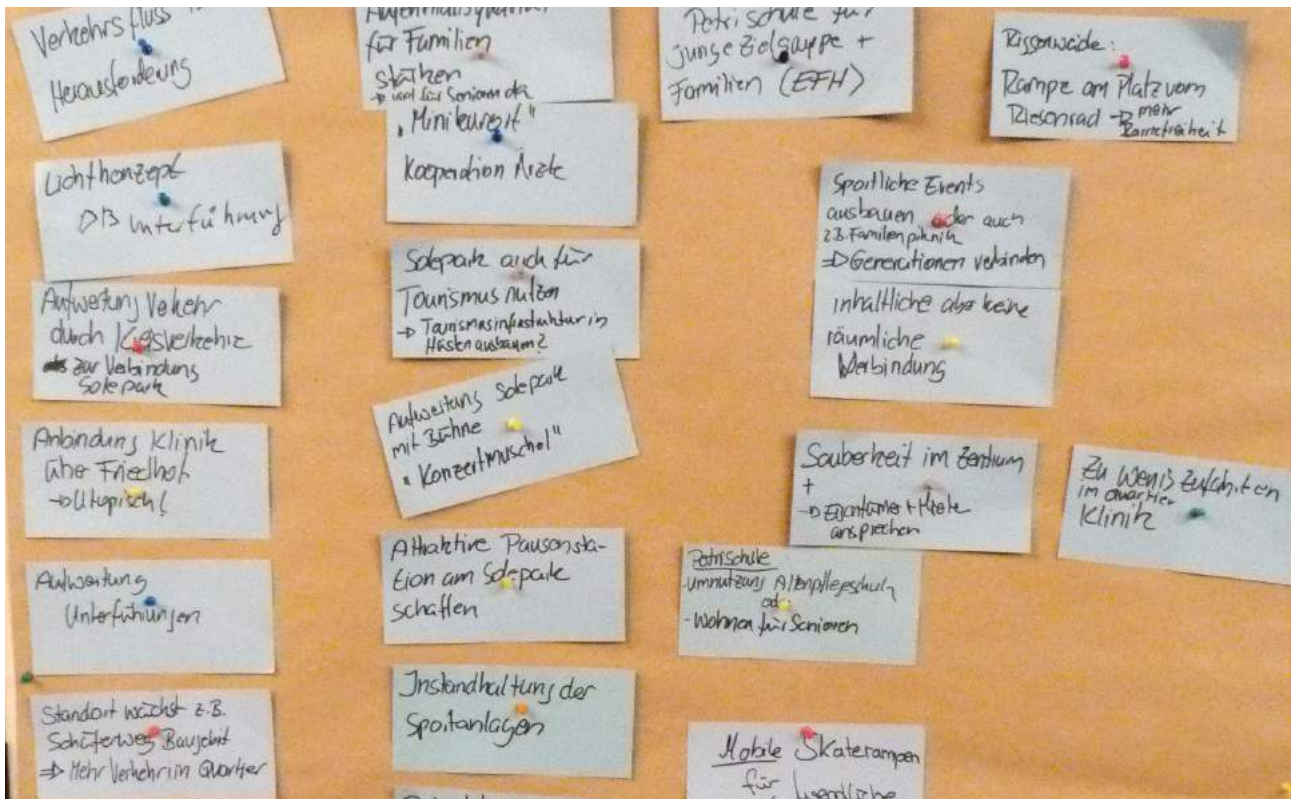 Verkehrsfluss
Herausforderung
Lichtkonzept
DB Unterführung
Aufwertung Verkehr
durch Kreisverkehr
zur Verbindung
Solepark
Anbindung Klinik
über Friedhof
→ Utopisch!
Aufwertung
Unterführungen
Standort wächst z.B.
Schäferweg Baugebiet
⇒ Mehr Verkehr im Quartier
Aufenthaltsqualität
für Familien
stärken
→ und für Senioren da
"Minikurort"
Kooperation Ärzte
Solepark auch für
Tourismus nutzen
→ Tourismusinfrastruktur in
ausbauen?
Aufwertung Solepark
mit Bühne
"Konzertmuschel"
Attraktive Pausensta-
tion am Solepark
schaffen
Instandhaltung der
Sportanlagen
Petrischule für
junge Zielgruppe +
Familien (EFH)
Sportliche Events
ausbauen oder auch
z.B. Familienpiknik
⇒ Generationen verbinden
inhaltliche aber keine
räumliche
Verbindung
Sauberkeit im Zentrum
+
→ Eigentümer + Mieter
ansprechen
Petrischule
- Umnutzung Altenpflegeschule
oder
- Wohnen für Senioren
Mobile Skaterampen
für Jugendliche
Rampe am Platz vom
Riesenrad → mehr
Barrierefreiheit
Zu wenig Zufahrten
im Quartier
Klinik